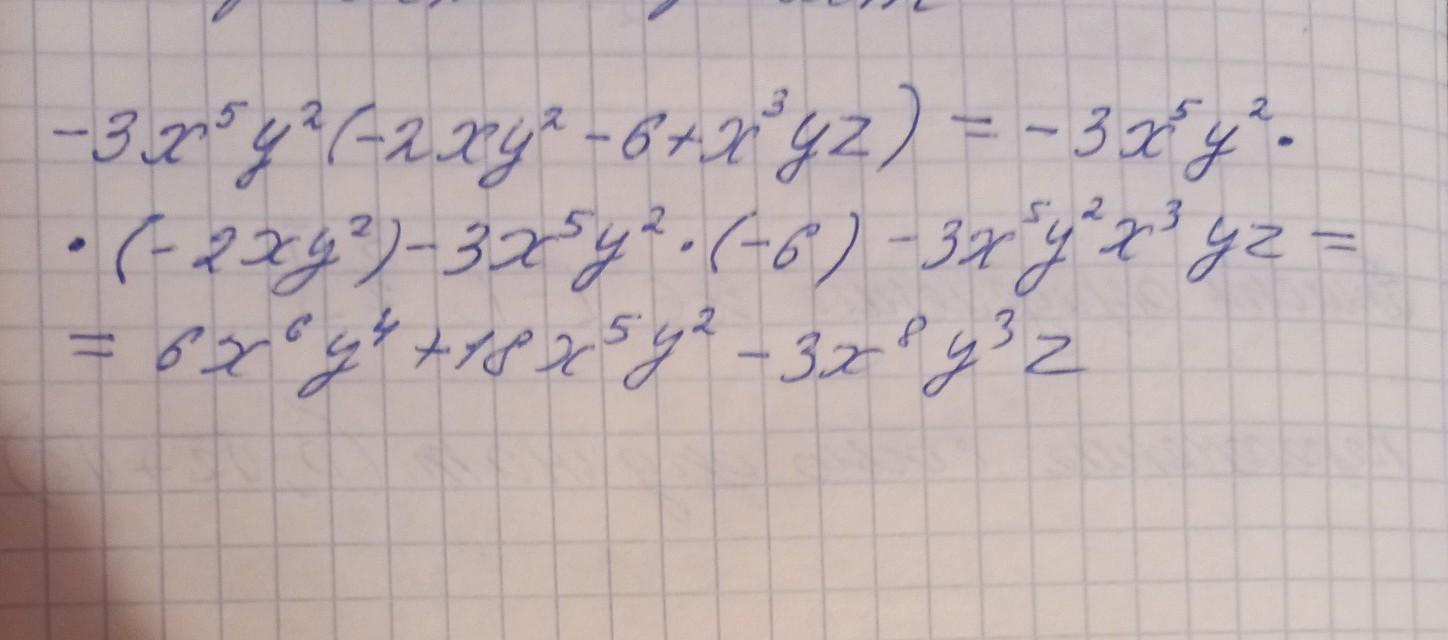 -3x⁵y²(-2xy² -6+x³yz) = -3x⁵y²·
·(-2xy²)-3x⁵y²·(-6) -3x⁵y²x³yz =
= 6x⁶y⁴+18x⁵y² -3x⁸y³z